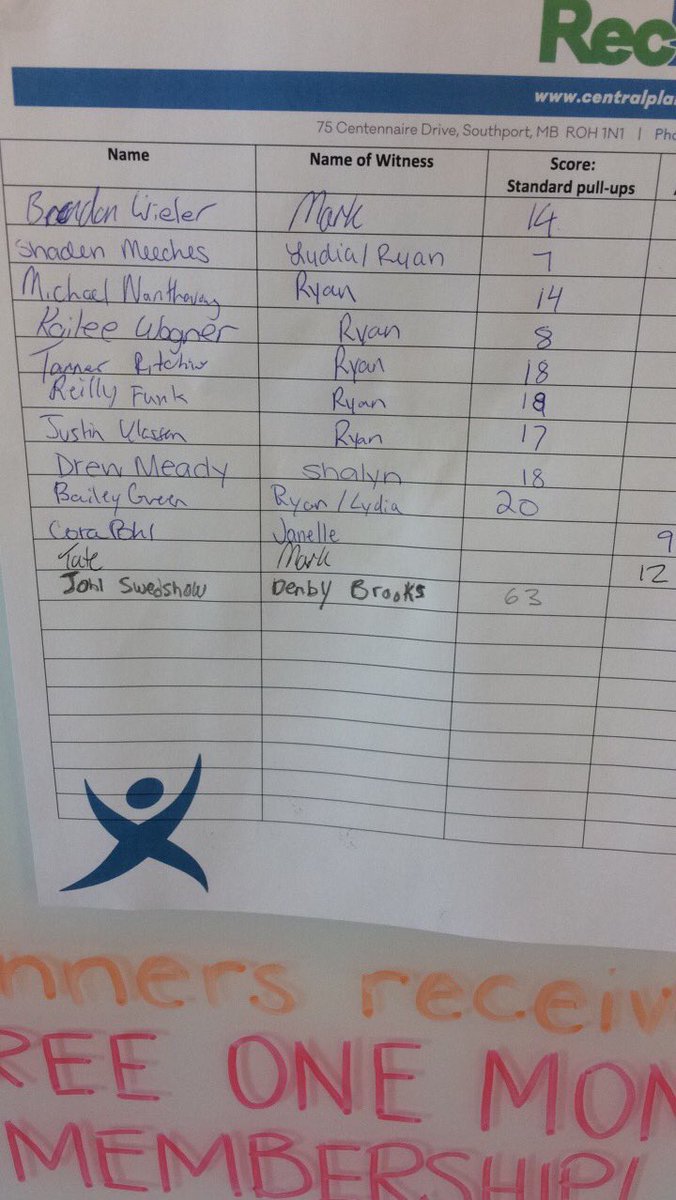 Rec
www.centralpla
75 Centennaire Drive, Southport, MB ROH 1N1 | Pho
Name Name of Witness Score: Standard pull-ups
Brendon Wieler Mark 14
Shaden Meeches Lydia/Ryan 7
Michael Ryan 14
Kailee Wagner Ryan 8
Tanner Ritchie Ryan 18
Reilly Funk Ryan 18
Justin Klassen Ryan 17
Drew Meady Shalyn 18
Bailey Green Ryan/Lydia 20
Cora Pohl Janelle 9
Tate Mark 12
John Swedshow Denby Brooks 63
nners receiv
REE ONE MON
MEMBERSHIP!